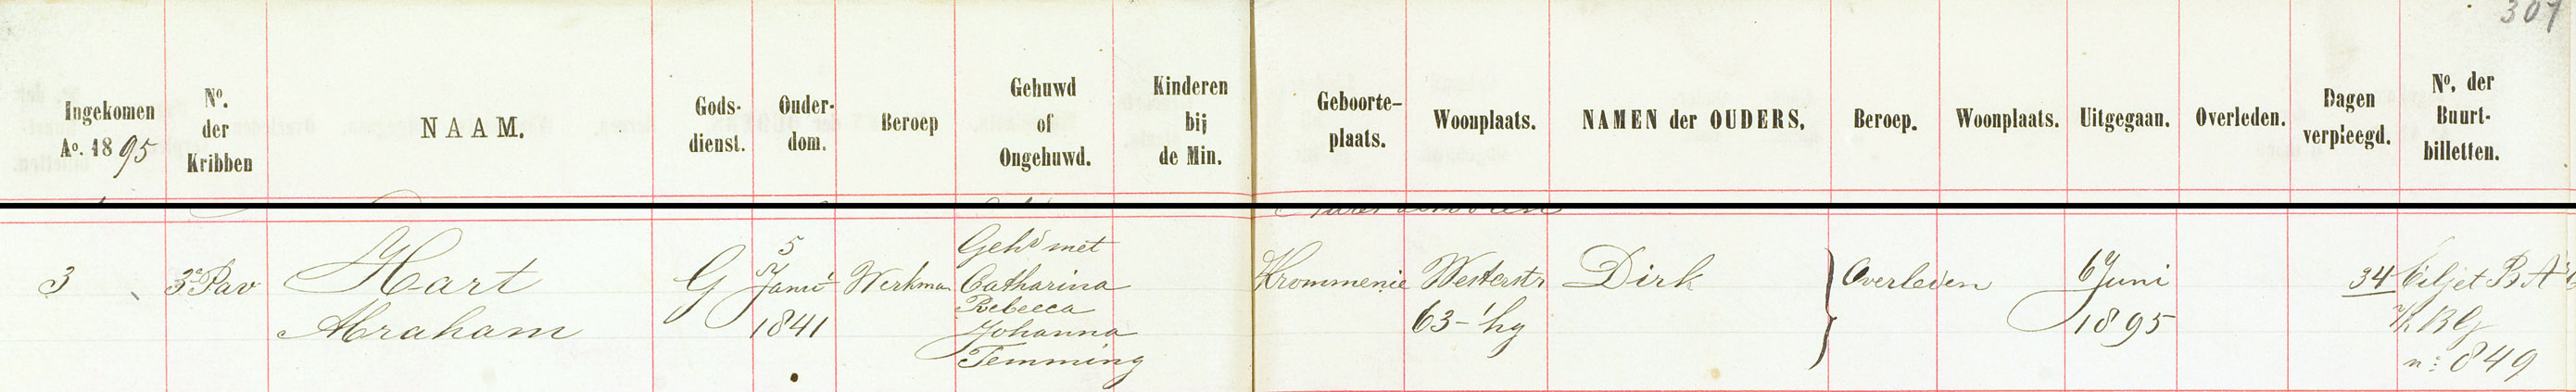 307
Ingekomen
Ao. 1895
No.
der
Kribben
NAAM.
Gods-
dienst.
Ouder-
dom.
Beroep
Gehuwd
of
Ongehuwd.
Kinderen
bij
de Min.
Geboorte-
plaats.
Woonplaats.
NAMEN der OUDERS,
Beroep.
Woonplaats.
Uitgegaan.
Overleden.
Dagen
verpleegd.
No. der
Buurt-
billetten.
3
3e Pav
Hart
Abraham
G
5
Janr
1841
Werkman
Gehd met
Catharina
Rebecca
Johanna
Temming
Krommenie
Westerstr
63-1 hg
Dirk
Overleden
6 Juni
1895
34
Biljet B A
BG
no 849